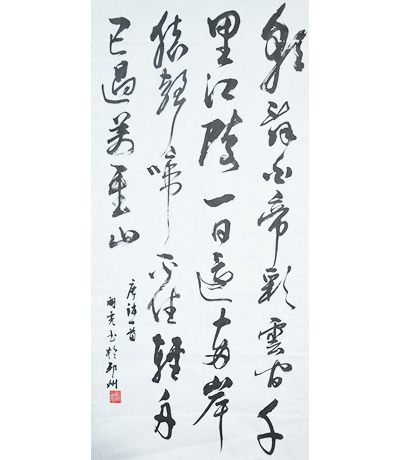 朝辭白帝彩雲間千
里江陵一日還兩岸
猿聲啼不住輕舟
已過萬重山
唐詩一首
书於
州